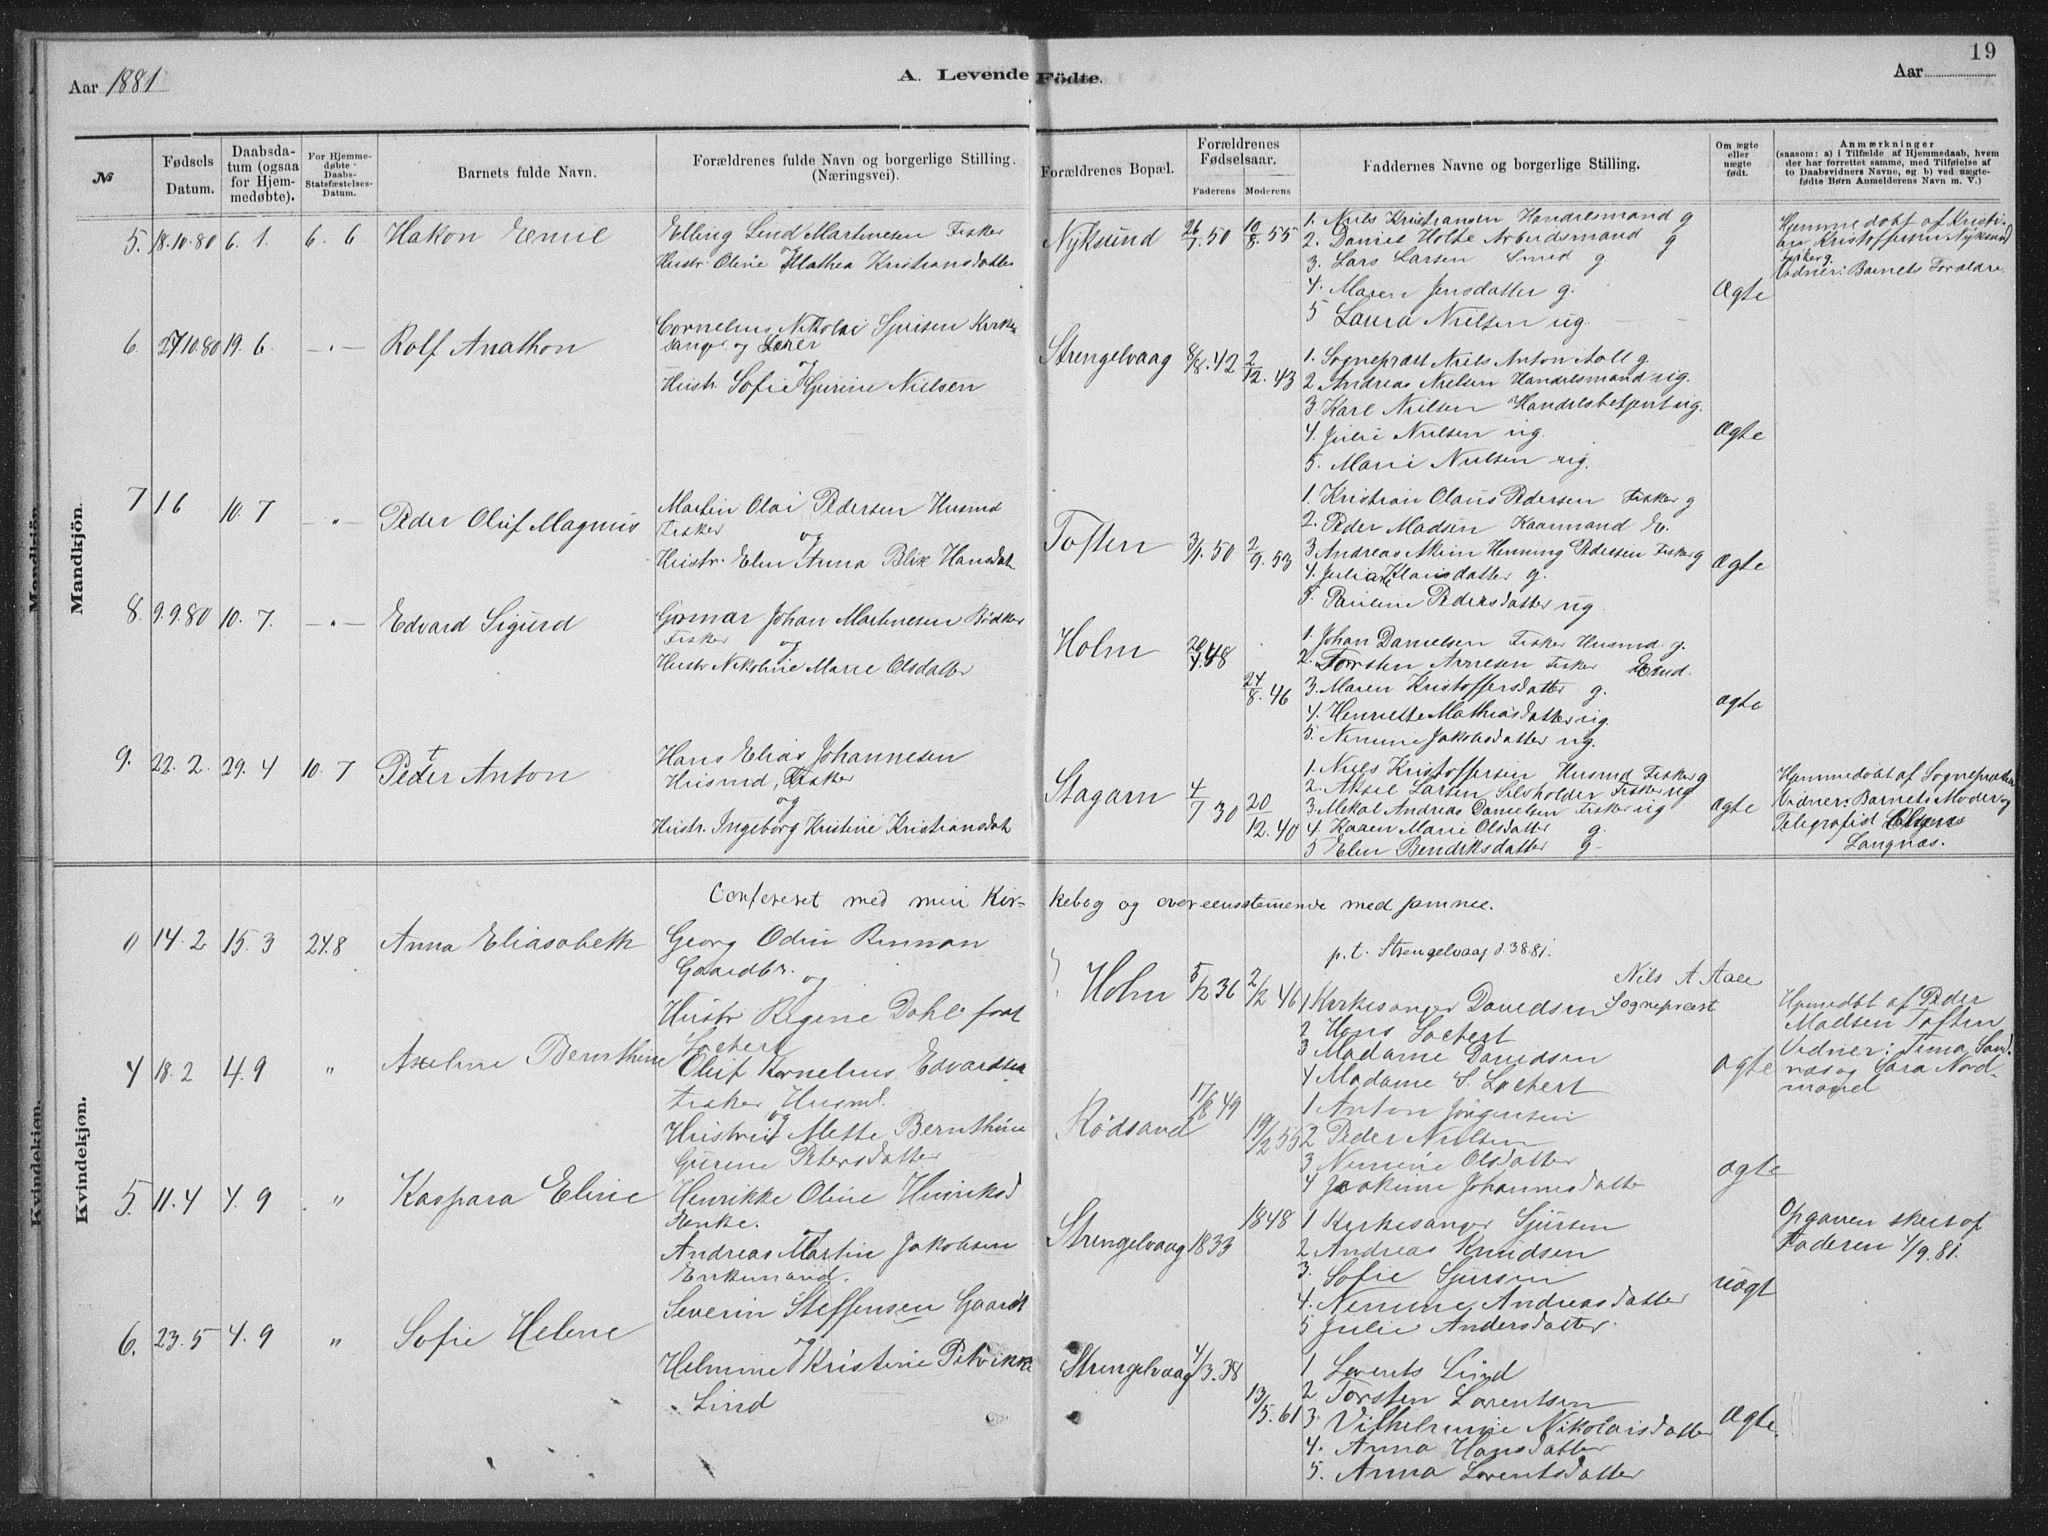 Aar 1881
A. Levende Födte.
Aar
19
№
Fødsels Datum.
Daabsdatum (ogsaa for Hjemmedøbte).
For Hjemmedøbte: Daabs-Statsfæstelses-Datum.
Barnets fulde Navn.
Forældrenes fulde Navn og borgerlige Stilling. (Næringsvei).
Forældrenes Bopæl.
Forældrenes Fødselsaar.
Faderens
Moderens
Faddernes Navne og borgerlige Stilling.
Om ægte eller uægte født.
Anmærkninger
(saasom: a) i Tilfælde af Hjemmedaab, hvem der har forrettet samme, med Tilføielse af to Daabsvidners Navne, og b) ved uægtefødte Børn Anmelderens Navn m. V.)
Mandkjön.
5. 18.10.80 6.1. 6.6 Hakon Emil
Elling Lind Martinesen Fisker
Hustr. Oline Mathea Kristiansdatter
Nyksund 26/7.50 10/8.55
1. Niels Kristiansen Handelsmand g
2. Daniel Holte Arbeidsmand g
3. Lars Larsen Smed g
4. Maren Jensdatter g.
5 Laura Nielsen ug.
Ægte
Hjemmedøbt af Kristine Kristoffersen Nyksund
Fisker g.
Vidner: Barnets Forældre.
6. 27.10.80 19.6 —„— Rolf Anathon
Cornelius Nikolai Sjursen Kirkesanger og Lærer
og
Hustr Sofie Gurine Nielsen
Strengelvaag 8/8.42 2/12.43
1. Sognepræst Niels Anton Aall g
2 Andreas Nielsen Handelsmand ug.
3. Karl Nielsen Handelsbetjent ug.
4. Julie Nielsen ug.
5. Marie Nielsen ug.
Ægte
7 1.6 10.7 —„— Peder Oluf Magnus
Martin Olai Pedersen Husmd
Fisker og
Hustr. Elen Anna Blix Hansdat
Toften 3/1.50 2/9.53
1. Kristian Olaus Pedersen Fisker g
2. Peder Madsen Kaarmand E.
3 Andreas Akim Henning Pedersen Fisker g
4. Juliane Klausdatter g.
5. Pauline Pedersdatter ug.
Ægte
8. 9.9.80 10.7. —„— Edvard Sigurd
Gunnar Johan Martinesen Bødker
Fisker og
Hustr Nikoline Marie Olsdatter
Holm 48 24/8.46
1. Johan Danielsen Fisker Husmd. g.
2. Torsten Arnesen Fisker Emd.
3. Maren Kristoffersdatter g.
4. Henriette Mathiasdatter ug.
5. Nemine Jakobsdatter ug.
Ægte
9. 22.2. 29.4 10.7 Peder Anton
Hans Elias Johannesen
Husmd, Fisker
og
Hustr. Ingeborg Kristine Kristiansdat
Stagarn 4/7 30 20/12.40
1. Niels Kristoffersen Husmd Fisker g
2. Aksel Larsen Selvholder Fisker ug
3. Mekal Andreas Danielsen Fisker ug
4 Karen Marie Olsdatter g.
5 Elen Bendiksdatter g.
Ægte
Hjemmedøbt af Sognepræsten
Vidner: Barnets Moder og
Telegrafist
Langnæs.
Confereret med min Kirkebog og overeensstemmende med samme.
p.t. Strengelvaag d 3 8.81.
Nils A Aall
Sognepræst
Kvindekjøn.
14.2 15.3 24.8 Anna Eliasabeth
Georg Odin Rinnan
Gaardbr. og
Hustr Regine Dahl født
Lochert
Holm 5/2 36 2/2 46
1 Kirkesanger Davidsen
2 Hans Lochert
3 Madame Davidsen
4 Madame S. Lochert
Ægte
Hjemedøbt af Peder
Madsen Toften
Vidner: Tima Sandnæs og Sara Nordmoael
4 18.2 4.9 „ Axeline Bernthine
Oluf Kornelius Edvardsen
Fisker Husmd.
og
Hustru Mette Bernthine
Gurine Petersdatter
Rödsand 17/8 49 19/2 55
1 Anton Jörgensen
2 Peder Nielsen
3 Nemine Olsdatter
4 Joakime Johannesdatter
Ægte
5. 11.4 4.9 „ Kaspara Eline
Henrikke Oline Hinriksd
Enke.
Andreas Martin Jakobsen
Enkemand.
Strengelvaag 1833 1848
1 Kirkesanger Sjursen
2 Andreas Knudsen
3. Sofie Sjursen
4. Nemine Andreasdatter
5 Julie Andersdatter.
Uægt
Opgaven skeet af
Faderen 4/9.81.
6. 23.5 4.9 „ Sofie Helene
Severin Steffensen Gaardb
og
Helmine Kristine Petrikke
Lind
Strengelvaag 4/3.38 13/5.61
1 Lorents Lind
2 Torsten Lorentsen
3 Vilhelmine Nikolaisdatter
4. Anna Hansdatter
5. Anna Lorentsdatter
Ægte.